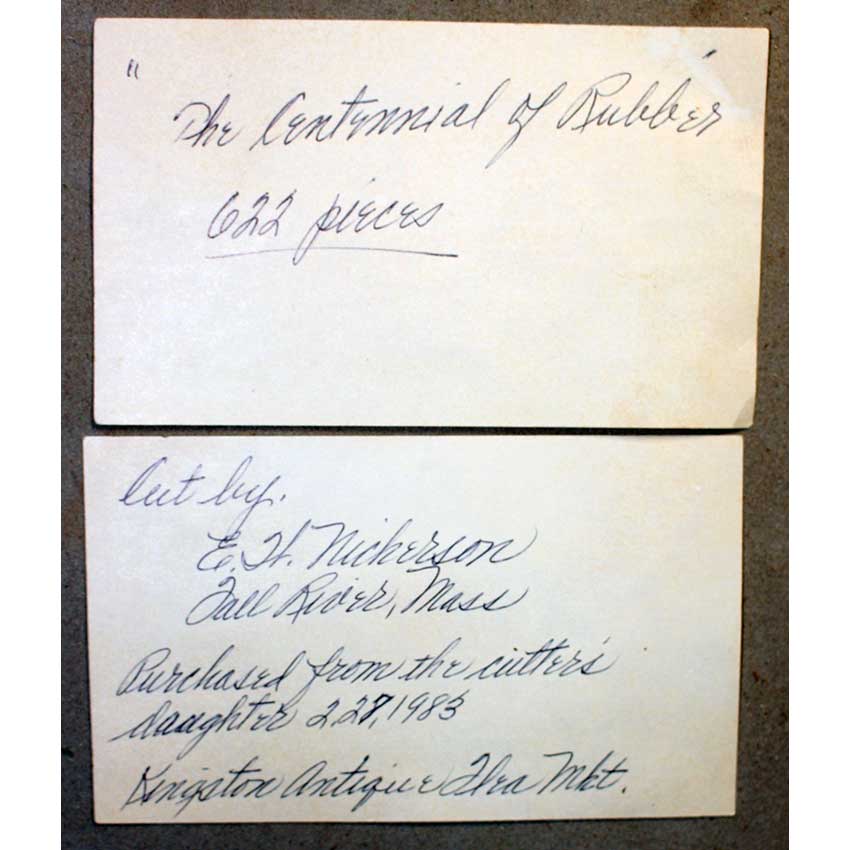 "
The Centennial of Rubber
622 pieces
Cut by.
E. H. Nickerson
Fall River, Mass
Purchased from the cutter's
daughter 2.27,1983
Kingston Antique Flea Mkt.